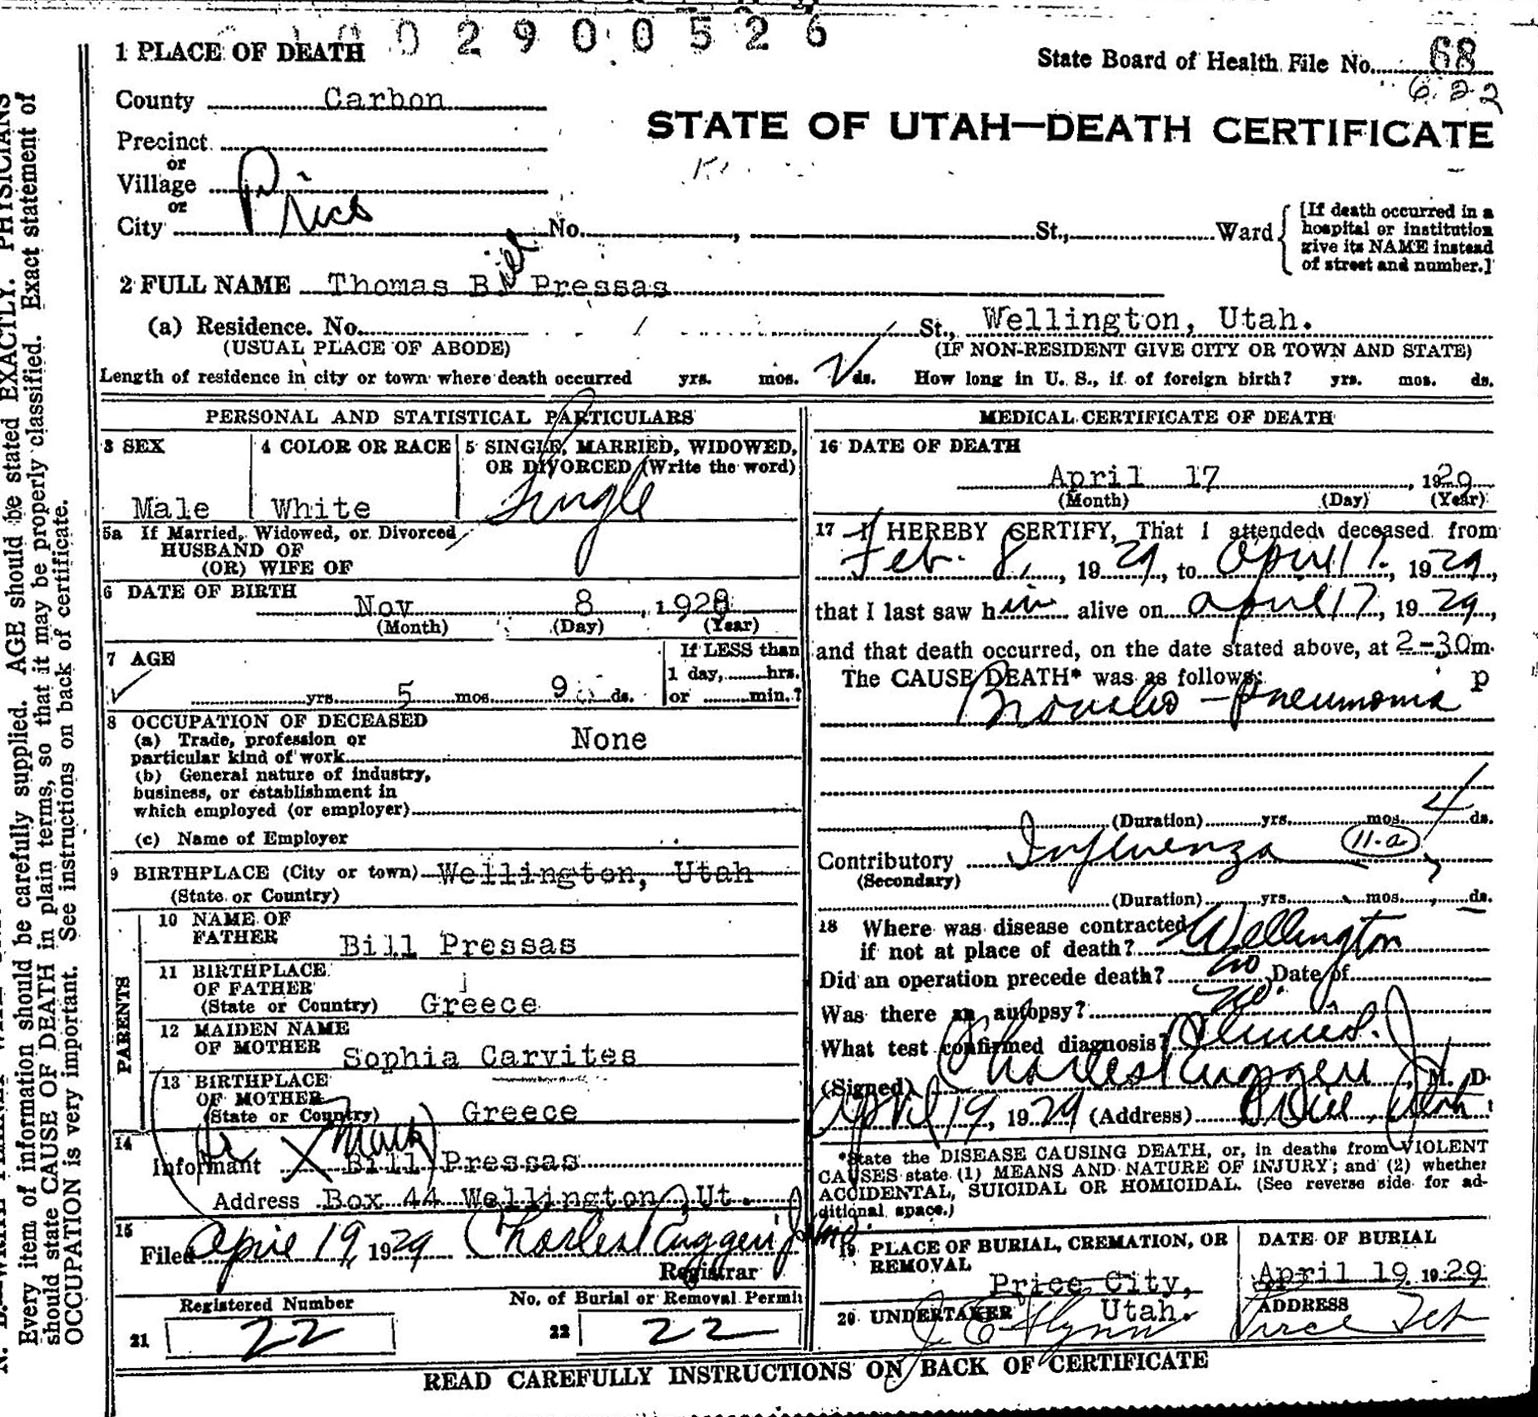 1002900526
1 PLACE OF DEATH
State Board of Health File No. 68
622
County Carbon
STATE OF UTAH—DEATH CERTIFICATE
Precinct
or
Village
or
City Price No. , St., Ward
[If death occurred in a
hospital or institution
give its NAME instead
of street and number.]
2 FULL NAME Thomas Bill Pressas
(a) Residence. No. St., Wellington, Utah.
(USUAL PLACE OF ABODE) (IF NON-RESIDENT GIVE CITY OR TOWN AND STATE)
Length of residence in city or town where death occurred yrs. mos. ds. How long in U. S., if of foreign birth? yrs. mos. ds.
PERSONAL AND STATISTICAL PARTICULARS
3 SEX
Male
4 COLOR OR RACE
White
5 SINGLE, MARRIED, WIDOWED,
OR DIVORCED (Write the word)
Single
5a If Married, Widowed, or Divorced
HUSBAND OF
(OR) WIFE OF
6 DATE OF BIRTH
Nov 8, 1928
(Month) (Day) (Year)
7 AGE
yrs. 5 mos 9 ds.
If LESS than
1 day, hrs.
or min.?
8 OCCUPATION OF DECEASED
(a) Trade, profession or
particular kind of work None
(b) General nature of industry,
business, or establishment in
which employed (or employer)
(c) Name of Employer
9 BIRTHPLACE (City or town) Wellington, Utah
(State or Country)
PARENTS
10 NAME OF
FATHER Bill Pressas
11 BIRTHPLACE
OF FATHER
(State or Country) Greece
12 MAIDEN NAME
OF MOTHER Sophia Carvites
13 BIRTHPLACE
OF MOTHER
(State or Country) Greece
14
Informant X Mark
Bill Pressas
Address Box 44 Wellington, Ut.
15
Filed April 19, 1929 Charles Ruggeri Jr MD.
Registrar
Registered Number
21 22
No. of Burial or Removal Permit
22 22
MEDICAL CERTIFICATE OF DEATH
16 DATE OF DEATH
April 17, 1929
(Month) (Day) (Year)
17 I HEREBY CERTIFY, That I attended deceased from
Feb. 8, 1929, to April 17, 1929,
that I last saw him alive on April 17, 1929,
and that death occurred, on the date stated above, at 2-30m.
p
The CAUSE DEATH* was as follows:
Broncho-Pneumonia
(Duration) yrs. mos. 4 ds.
Contributory Influenza 11-a
(Secondary)
(Duration) yrs. mos. ds.
18 Where was disease contracted
if not at place of death? Wellington
Did an operation precede death? no Date of
Was there an autopsy? no.
What test confirmed diagnosis?
(Signed) Charles Ruggeri Jr M. D.
April 19, 1929 (Address) Price, Utah
*State the DISEASE CAUSING DEATH, or, in deaths from VIOLENT
CAUSES state (1) MEANS AND NATURE OF INJURY; and (2) whether
ACCIDENTAL, SUICIDAL OR HOMICIDAL. (See reverse side for ad-
ditional space.)
19 PLACE OF BURIAL, CREMATION, OR
REMOVAL
Price City,
Utah.
DATE OF BURIAL
April 19 1929
20 UNDERTAKER
J. E. Flynn
ADDRESS
Price Utah
READ CAREFULLY INSTRUCTIONS ON BACK OF CERTIFICATE
Every item of information should be carefully supplied. AGE should be stated EXACTLY. PHYSICIANS
should state CAUSE OF DEATH in plain terms, so that it may be properly classified. Exact statement of
OCCUPATION is very important. See instructions on back of certificate.